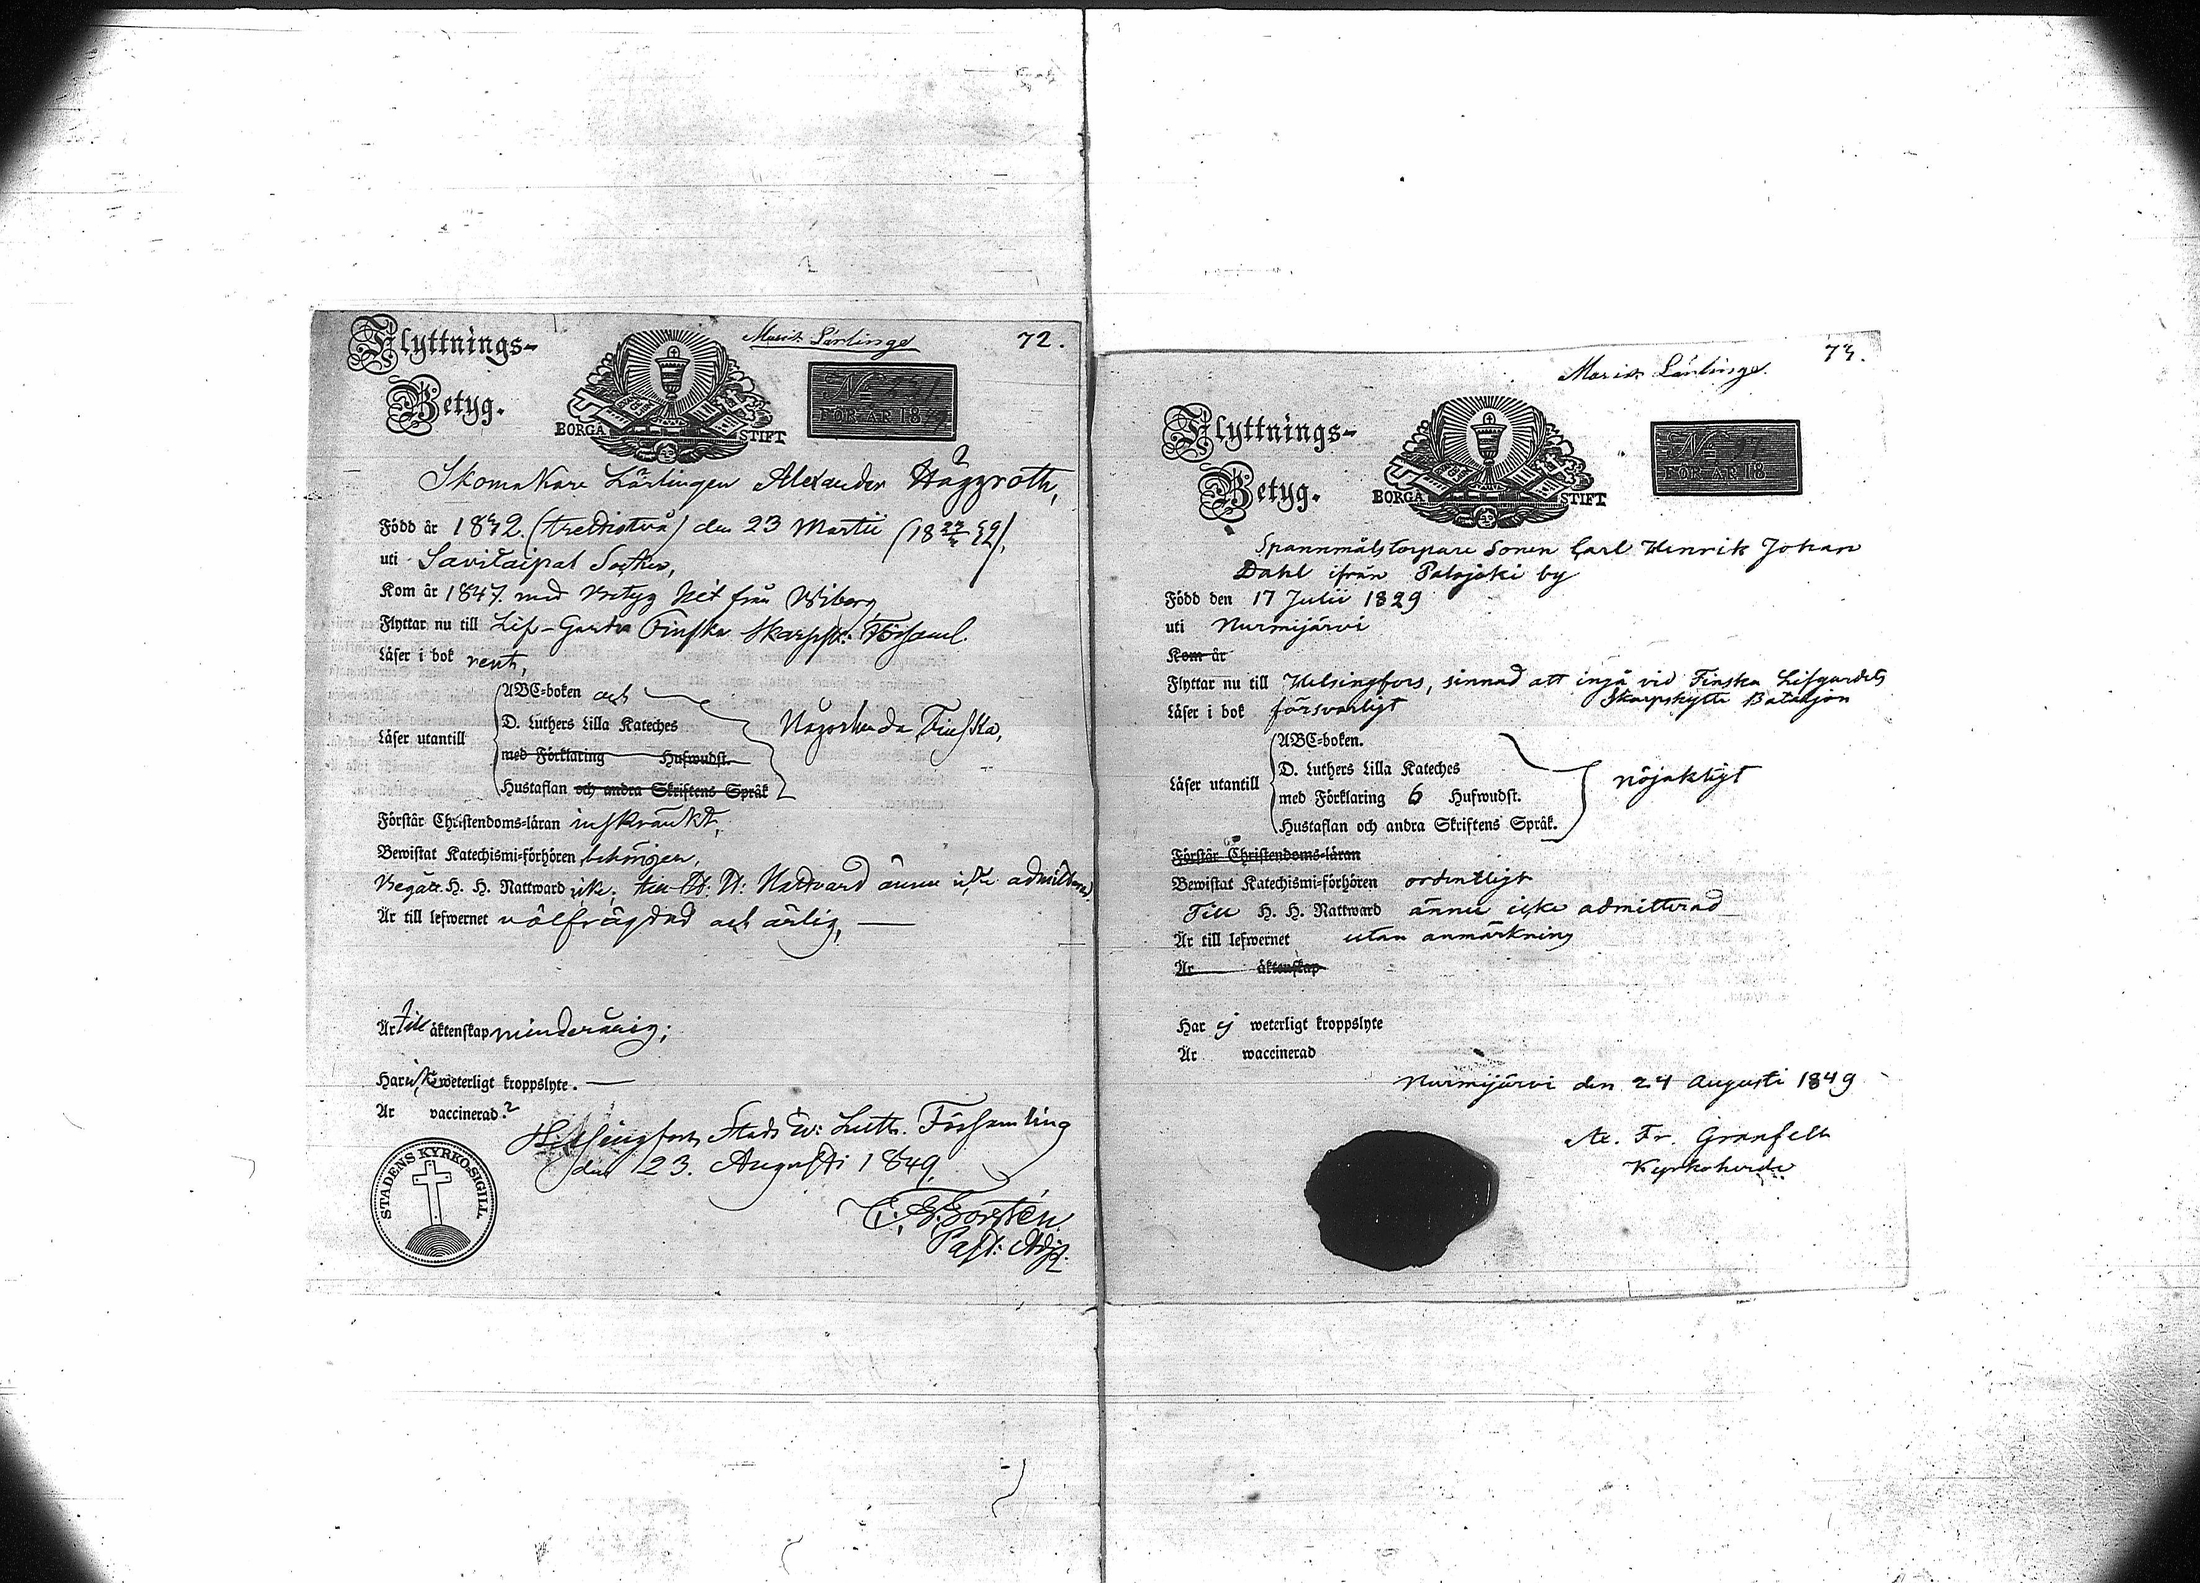 Flyttnings-
Betyg.
BORGÅ STIFT
Musik Lärlinge
72.
No
FÖR ÅR 18
Skomakare Lärlingen Alexander Häggroth,
Född år 1832. (trediotvå) den 23 Martii (18 23/3 32).
uti Savitaipal Socken,
Kom år 1847. med Betyg hit från Wiborg
Flyttar nu till Lif-Gardes Finska Skarpsk: Församl.
Läser i bok rent,
Läser utantill
ABC-boken och
D. Luthers Lilla Kateches
med Förklaring Hufwudst.
Hustaflan och andra Skriftens Språk
Någorlunda, Finska,
Förstår Christendoms-läran inskränkt,
Bewistat Katechismi-förhören behörigen,
Begått H. H. Nattward ick; till H. H. Nattvard ännu icke admitterad.
Är till lefwernet välfrägdad och ärlig,
Är till äktenskap minderårig;
Har icke weterligt kroppslyte.
Är vaccinerad?
Helsingfors Stads Ev: Luth. Församling
den 23. Augusti 1849.
STADENS KYRKO-SIGILL
Past: Adj.
73.
Musik Lärlinge.
Flyttnings-
Betyg.
BORGÅ STIFT
No
FÖR ÅR 18
Spannmåls torpare Sonen Carl Henrik Johan
Dahl ifrån Palojoki by
Född den 17 Julii 1829
uti Nurmijärvi
Kom år
Flyttar nu till Helsingfors, sinnad att ingå vid Finska Lifgardets
Skarpskytte Bataljon
Läser i bok försvarligt
Läser utantill
ABC-boken.
D. Luthers Lilla Kateches
med Förklaring 6 Hufwudst.
Hustaflan och andra Skriftens Språk.
nöjaktigt
Förstår Christendoms-läran
Bewistat Katechismi-förhören ordentligt
Till H. H. Nattward ännu icke admitterad
Är till lefwernet utan anmärkning
Är äktenskap
Har ej weterligt kroppslyte
Är waccinerad
Nurmijärvi den 24 Augusti 1849
Ax. Fr. Granfelt
Kyrkoherde